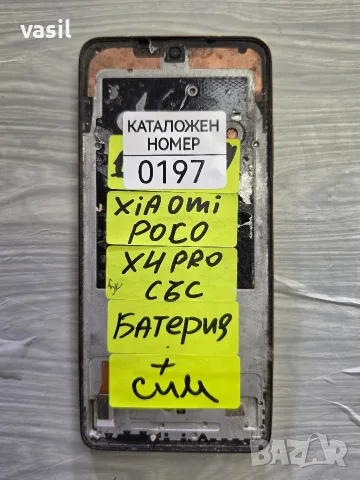 vasil
КАТАЛОЖЕН
НОМЕР
0197
XiAomi
POCO
X4 PRO
СЪС
БАТЕРИЯ
+
СИМ
BAZAR